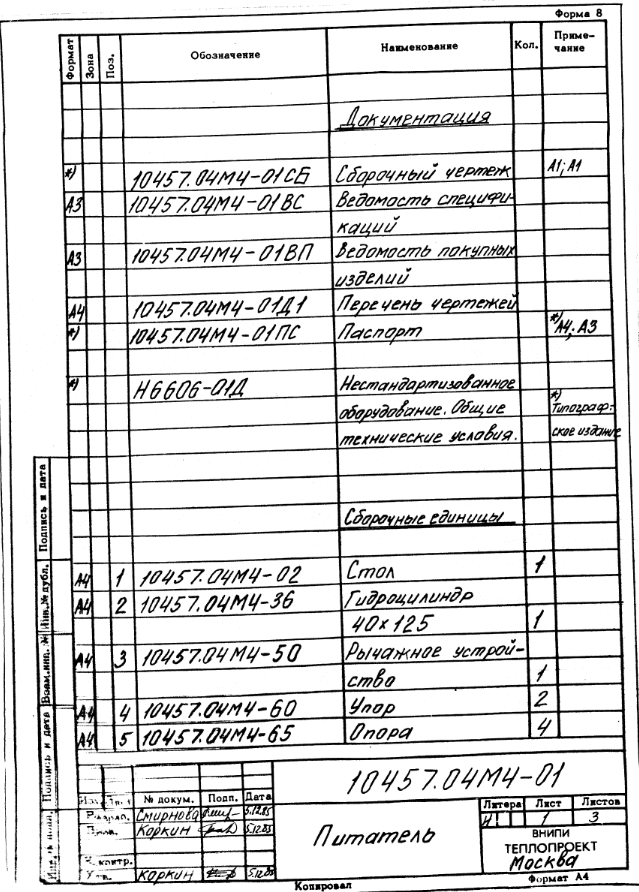 Форма 8
Формат Зона Поз. Обозначение Наименование Кол. Приме-
чание
Документация
*) 10457.04М4-01СБ Сборочный чертеж А1; А1
А3 10457.04М4-01ВС Ведомость специфи-
каций
А3 10457.04М4-01ВП Ведомость покупных
изделий
А4 10457.04М4-01Д1 Перечень чертежей
*) 10457.04М4-01ПС Паспорт *) А4; А3
*) Н6606-01Д Нестандартизованное
оборудование. Общие *)
Типограф-
технические условия. ское издание
Сборочные единицы
А4 1 10457.04М4-02 Стол 1
А4 2 10457.04М4-36 Гидроцилиндр
40х125 1
А4 3 10457.04М4-50 Рычажное устрой-
ство 1
А4 4 10457.04М4-60 Упор 2
А4 5 10457.04М4-65 Опора 4
Подпись и дата
Инв.№ дубл.
Взам.инв. №
Подпись и дата
10457.04М4-01
№ докум. Подп. Дата
Разраб. Смирнова 5.12.85
Коркин 5.12.85
Питатель
Литера Лист Листов
И 1 3
ВНИПИ
ТЕПЛОПРОЕКТ
Москва
Н. контр.
Утв. Коркин 5.12.85
Копировал Формат А4